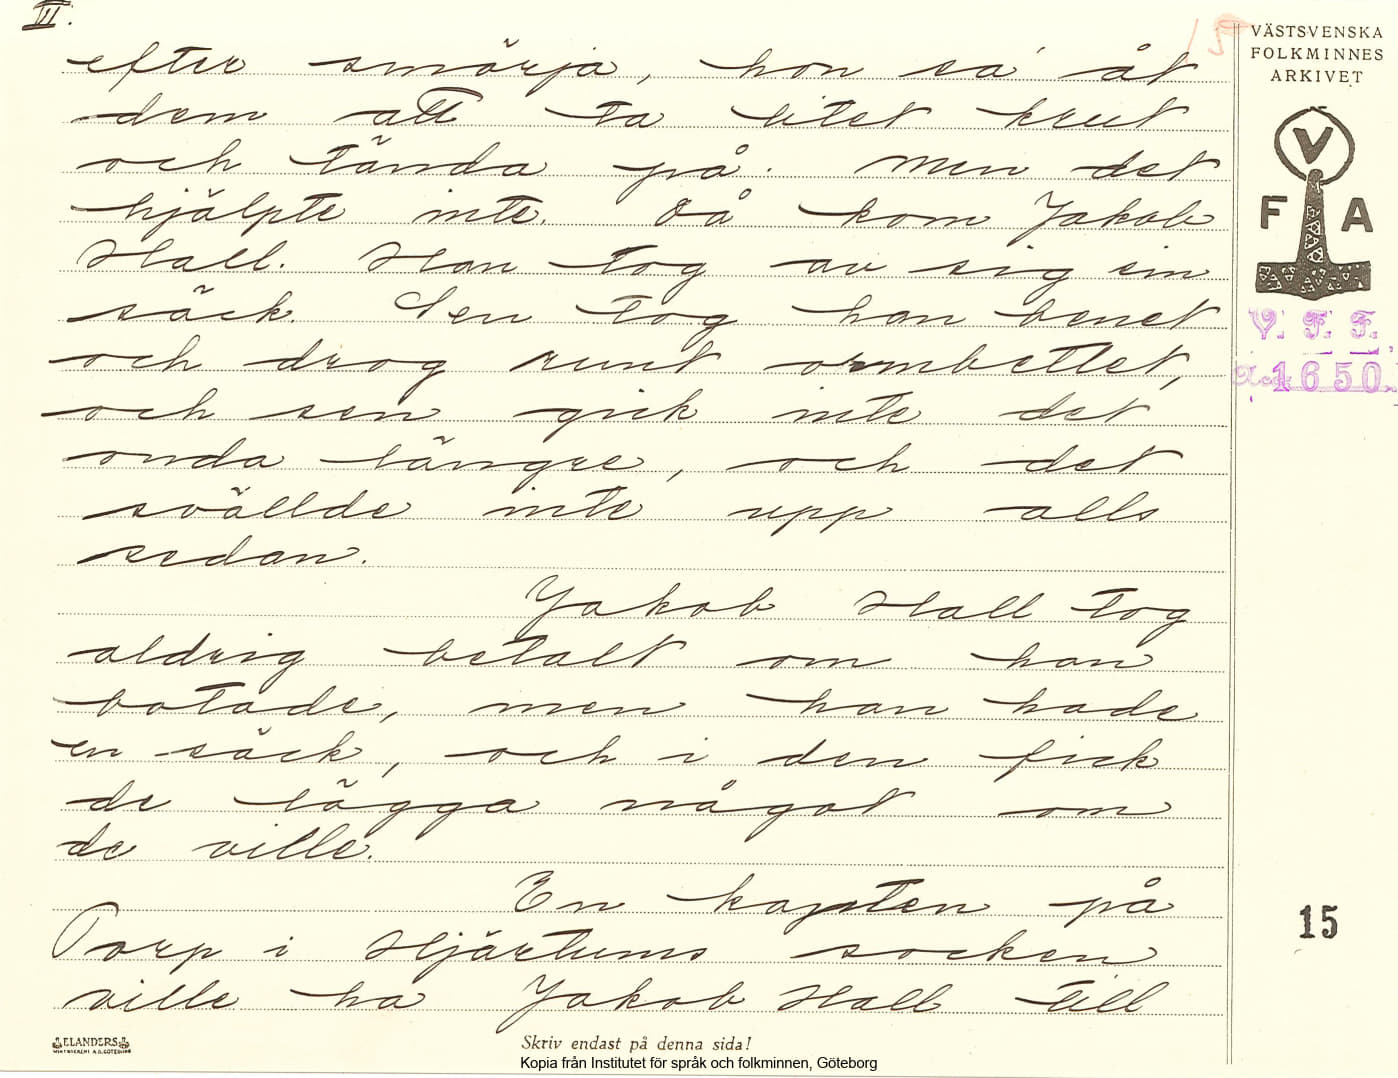 II.
15
VÄSTSVENSKA
FOLKMINNES
ARKIVET
V
F A
V. F. F.
Acc. 1650.
efter smörja, hon sa åt
dem att ta litet krut
och tända på. Men det
hjälpte inte. Då kom Jakob
Hall. Han tog av sig sin
säck. Sen tog han benet
och drog runt ormbettet,
och sen gick inte det
onda längre, och det
svällde inte upp alls
sedan.
Jakob Hall tog
aldrig betalt om han
botade, men han hade
en säck, och i den fick
de lägga något om
de ville.
En kapten på
Torp i Hjärtums socken
ville ha Jakob Hall till
15
ELANDERS
Skriv endast på denna sida!
Kopia från Institutet för språk och folkminnen, Göteborg